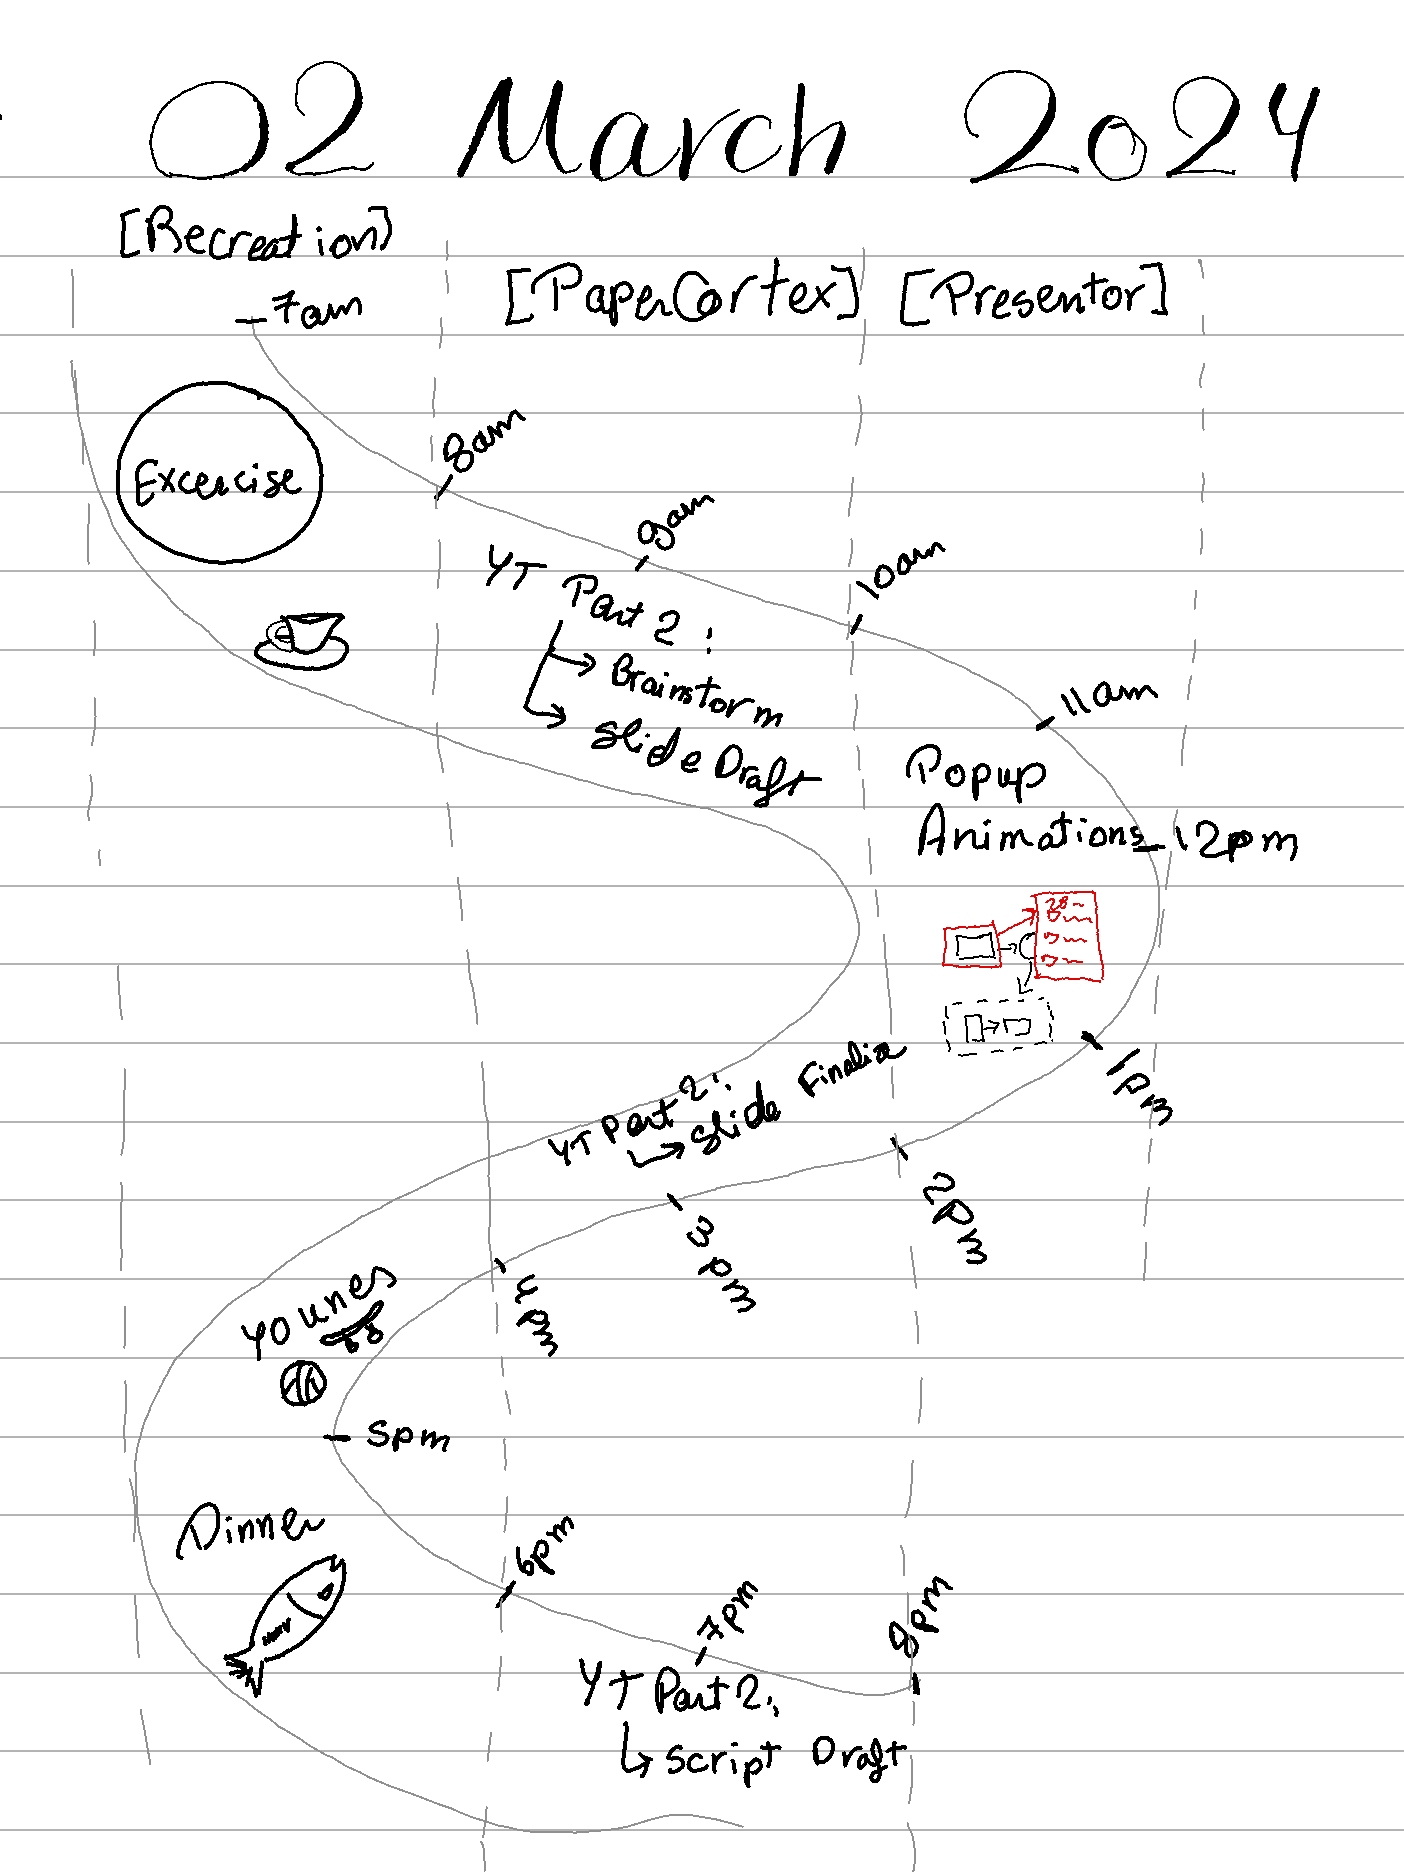 02 March 2024
[Recreation]
[PaperCortex] [Presentor]
7am
8am
Excercise
9am
10am
YT Part 2:
Brainstorm
Slide Draft
11am
Popup
Animations
12pm
1pm
YT Part 2:
Slide Finalize
2pm
3pm
4pm
Younes
5pm
Dinner
6pm
7pm
8pm
YT Part 2:
Script Draft